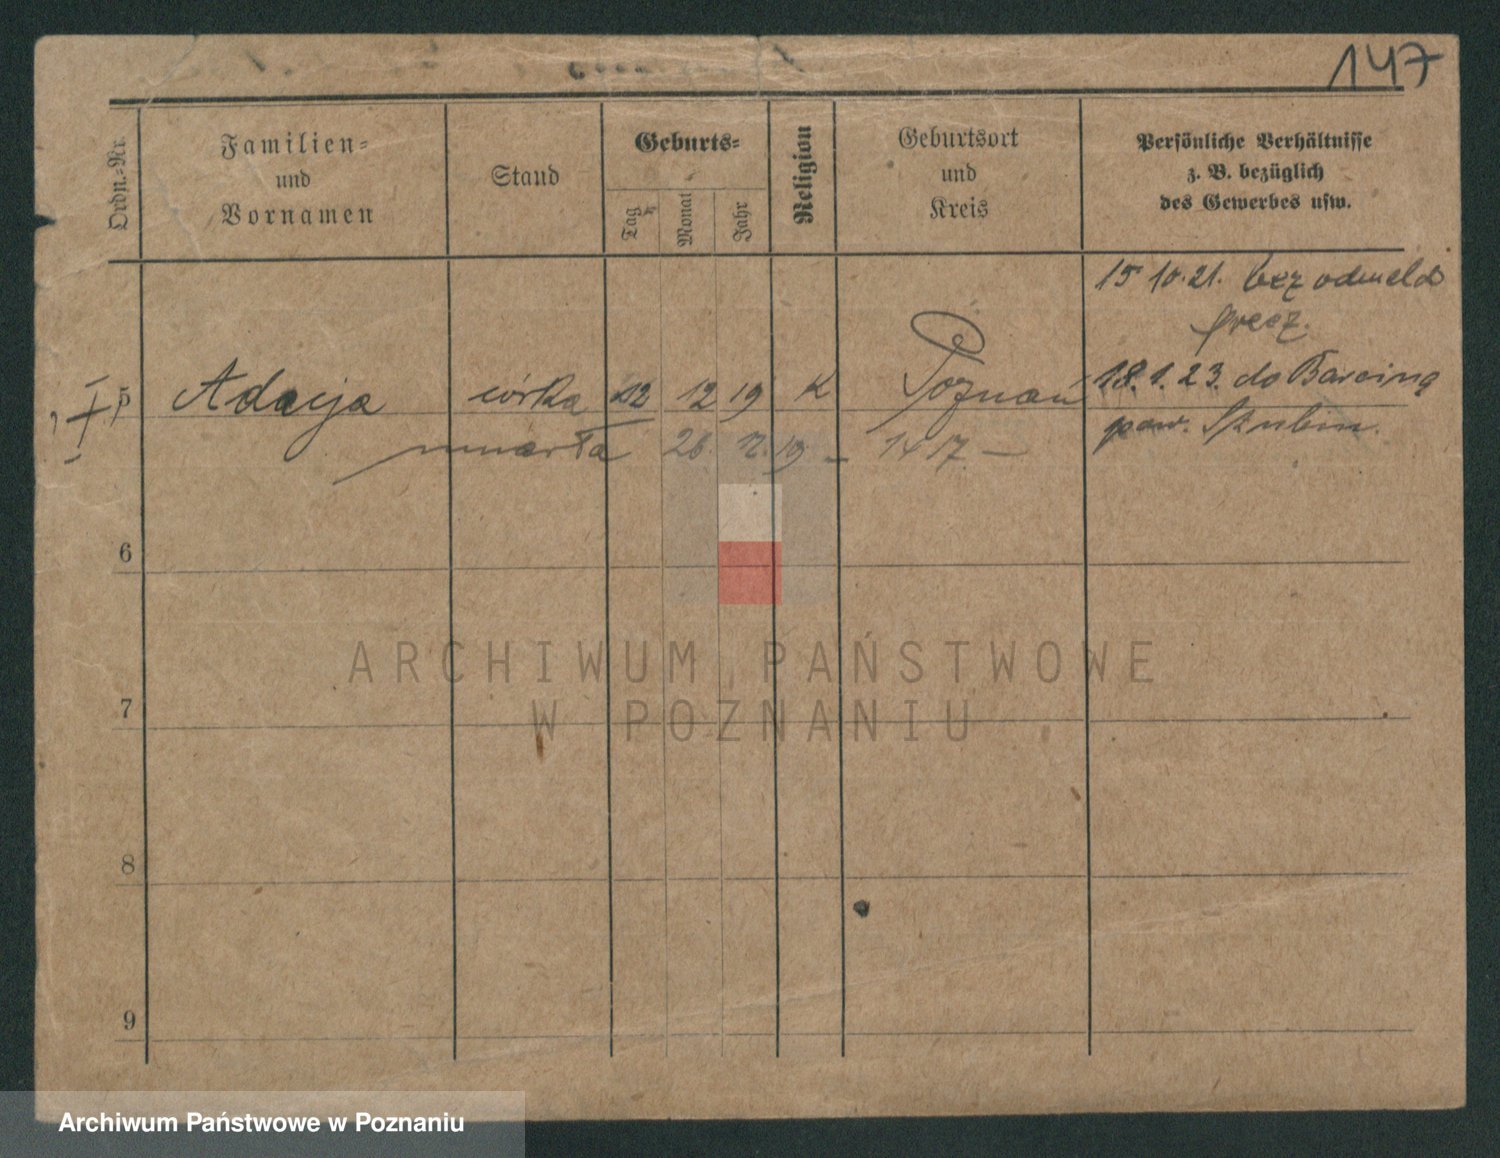 147
Ordn.-Nr.
Familien-
und
Vornamen
Stand
Geburts-
Tag
Monat
Jahr
Religion
Geburtsort
und
Kreis
Persönliche Verhältnisse
z. B. bezüglich
des Gewerbes usw.
15 10.21. bez odmeld
precz.
5 córka 12 12 19 K Poznań 18.1.23. do Barcina
pow. Szubin.
umarła 26. 12. 19 – 1417 –
6
7
8
9
ARCHIWUM PAŃSTWOWE
W POZNANIU
Archiwum Państwowe w Poznaniu